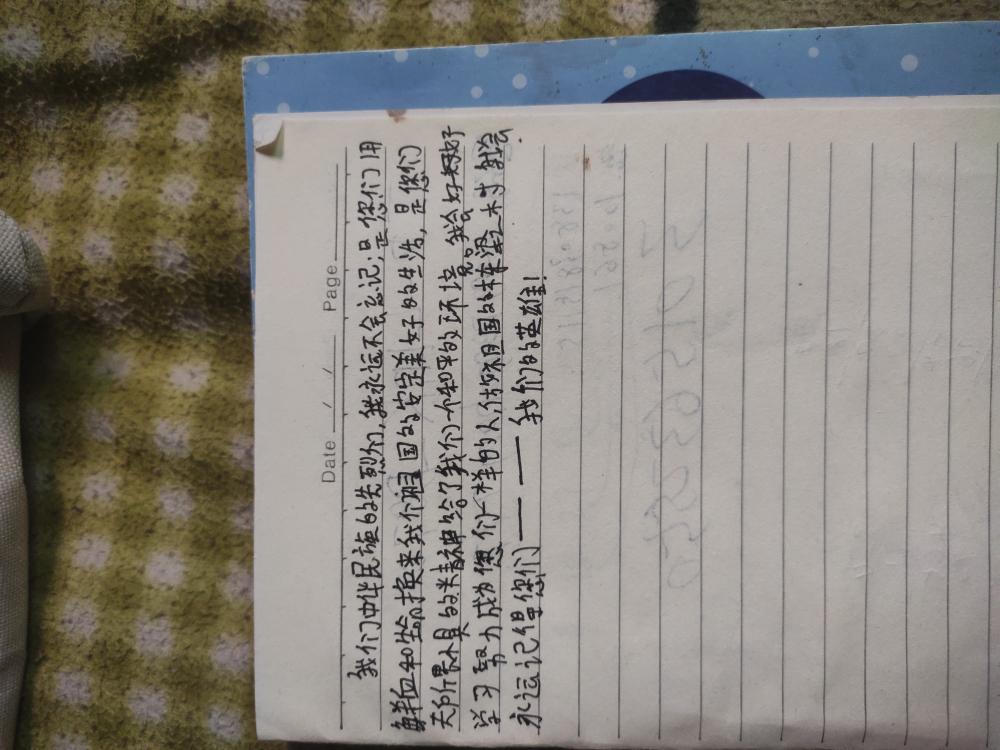 Date / / Page
我们中华民族的先烈们,我永远不会忘记;是您们用
鲜血和生命换来我们祖国的安定美好的生活,是您们
无所畏惧的精神给了我们一个和平的环境,我会好好
学习努力成为您们一样的人,做祖国的栋梁之才 我会
永远记得您们——我们的英雄!